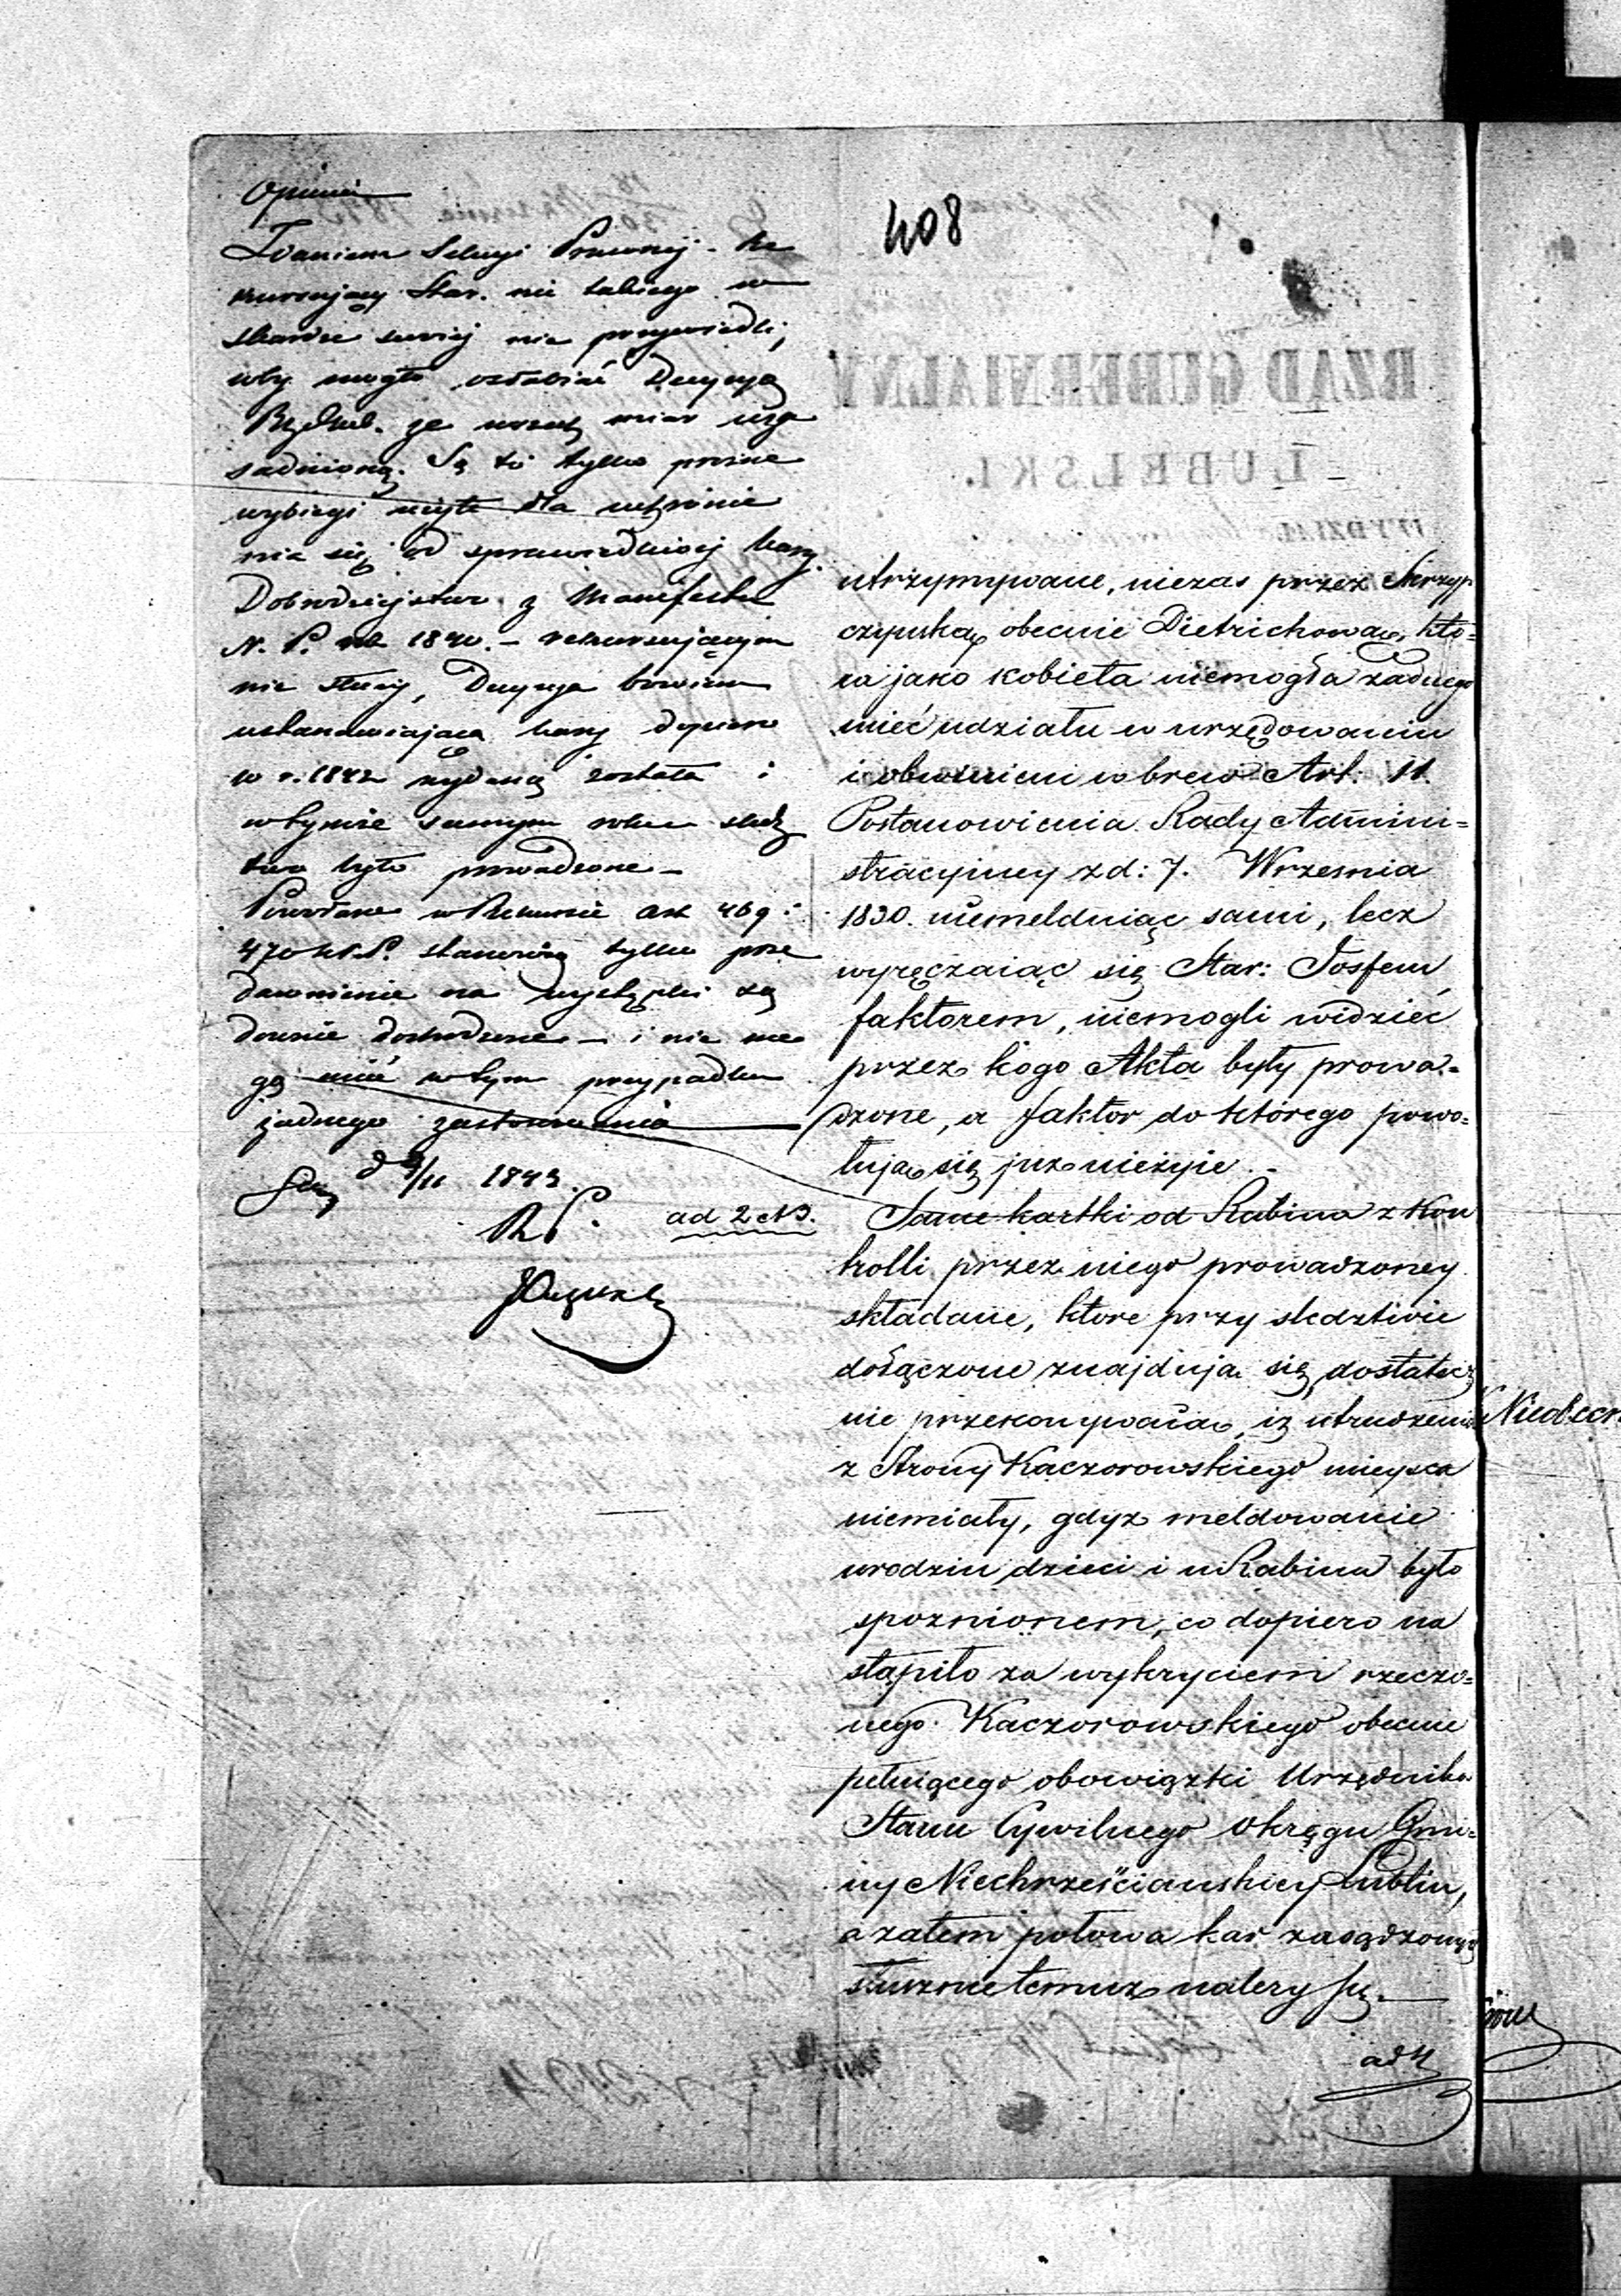 408
Opinia
Zdaniem Sekcyi Prawnej - Re
kursujący Star. nic takiego w
skardze swoiej nie przywiedli,
coby mogło osłabiać Decyzyą
Rz. Gub. ze wszech miar uza
sadnioną. Są to tylko próżne
wybiegi użyte dla uchronie
nia się od sprawiedliwej kary.
Dobrodziejstwo z Manifestu
N. P. 1840. - rekursującym
nie służy, Decyzya bowiem
ustanawiająca karę dopiero
w r. 1842 wydaną została i
w tymże samym roku śledz
two było prowadzone -
Powołane w Rekursie art 469 i
470 stanowią tylko prze
dawnienie na występki są
downie dochodzone - i nie mo
gą mieć w tym przypadku
żadnego zastosowania
1843.
ad 2 et 3.
utrzymywane, niezas przez Skrzyp
czyńską obecnie Dietrichową, któ=
ra jako kobieta niemogła żadnego
mieć udziału w urzędowaniu
i obwinieni wbrew Art: 11.
Postanowienia Rady Admini=
stracyiney z d: 7. Wrzesnia
1830. niemelduiąc sami, lecz
wyręczaiąc się Star: Josfem
faktorem, niemogli widzieć
przez kogo Akta były prowa=
dzone, a faktor do którego powo=
łują się już nieżyie. -
Same kartki od Rabina z Kon
trolli przez niego prowadzoney
składane, które przy śledztwie
dołączone znajdują się dostatecz
nie przekonywaią, iż utrudzenia
z Strony Kaczorowskiego mieysca
niemiały, gdyż meldowanie
urodzin dzieci i u Rabina było
spoznionem, co dopiero na
stąpiło za wykryciem rzeczo=
nego Kaczorowskiego obecnie
pełniącego obowiązki Urzędnika
Stanu Cywilnego Okręgu Gmi=
ny Niechrześciańskiey Lublin,
a zatem połowa kar zasądzonych
słusznie temuż należy się. -
ad 4
RZĄD GUBERNIALNY
LUBELSKI.
WYDZIAŁ